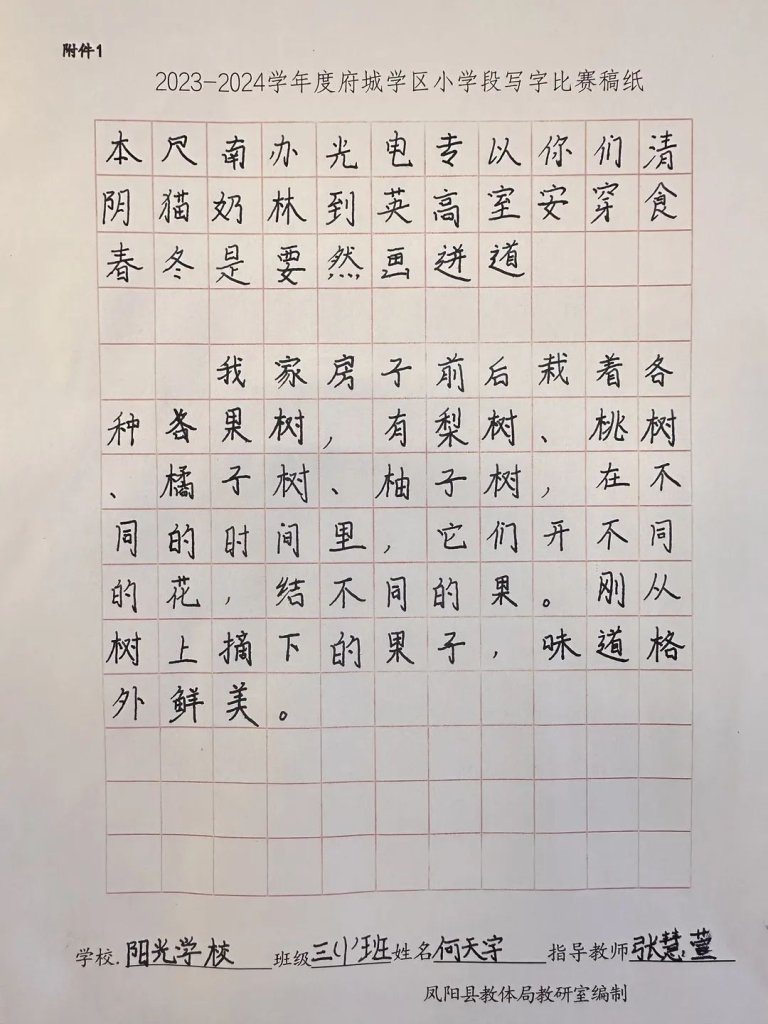 附件1
2023-2024学年度府城学区小学段写字比赛稿纸
本尺南办光电专以你们清
阴猫奶林到英高室安穿食
春冬是要然画迸道
我家房子前后栽着各
种各果树，有梨树、桃树
、橘子树、柚子树，在不
同的时间里，它们开不同
的花，结不同的果。刚从
树上摘下的果子，味道格
外鲜美。
学校.阳光学校 班级三(1)班 姓名何天宇 指导教师张慧萱
凤阳县教体局教研室编制